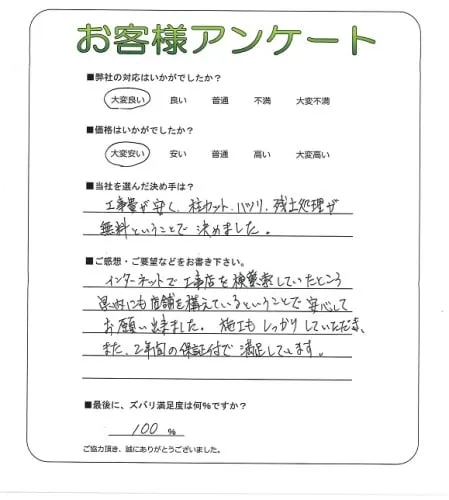 お客様アンケート
■弊社の対応はいかがでしたか?
大変良い 良い 普通 不満 大変不満
■価格はいかがでしたか?
大変安い 安い 普通 高い 大変高い
■当社を選んだ決め手は?
工事費が安く、柱カット、ハツリ、残土処理が
無料ということで決めました。
■ご感想・ご要望などをお書き下さい。
インターネットで工事店を検索していたところ
県内にも店舗を構えているということで安心して
お願い出来ました。施工もしっかりしていただき、
また、2年間の保証付で満足しています。
■最後に、ズバリ満足度は何%ですか?
100 %
ご協力頂き、誠にありがとうございました。